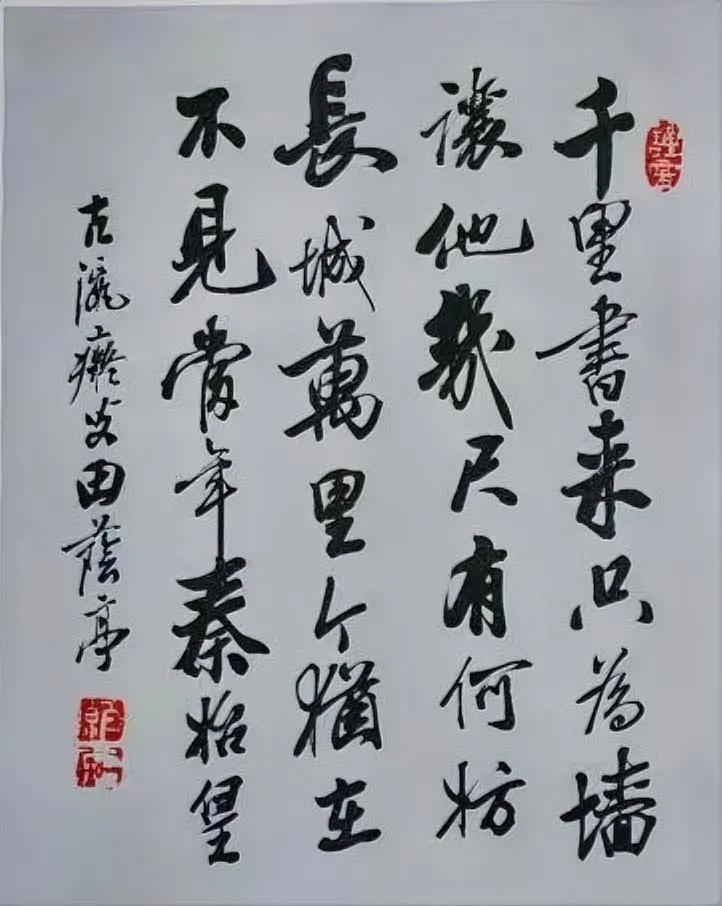 千里書来只為墙
讓他幾尺有何妨
長城萬里今猶在
不見當年秦始皇
古 田蔭亭